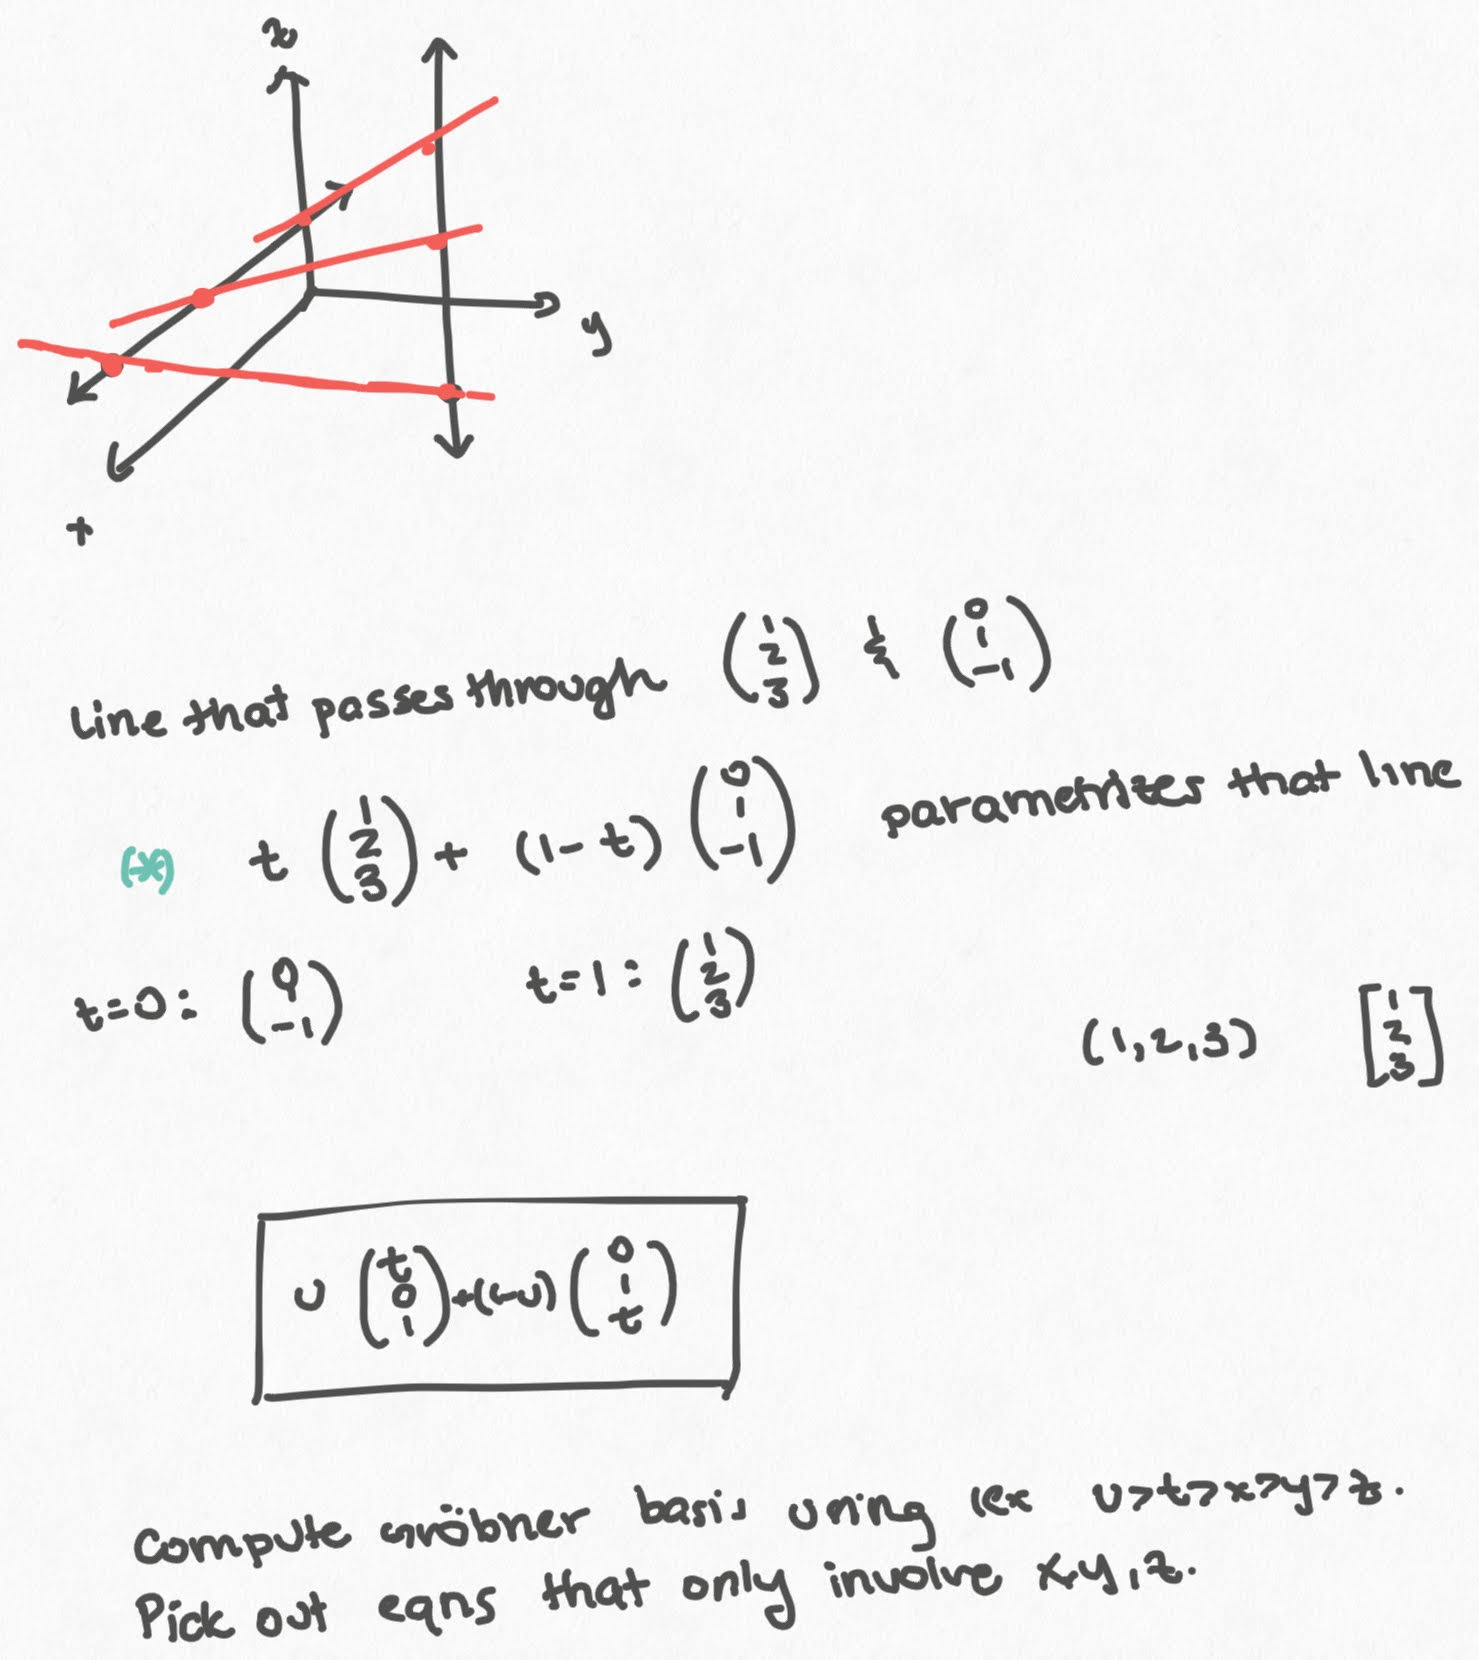 z
y
x
Line that passes through (1 2 3) & (0 1 -1)
(*) t (1 2 3) + (1-t) (0 1 -1) parametrizes that line
t=0: (0 1 -1) t=1: (1 2 3)
(1,2,3) [1 2 3]
u (t 0 1) + (1-u) (0 1 t)
Compute Gröbner basis using lex u>t>x>y>z.
Pick out eqns that only involve x,y,z.